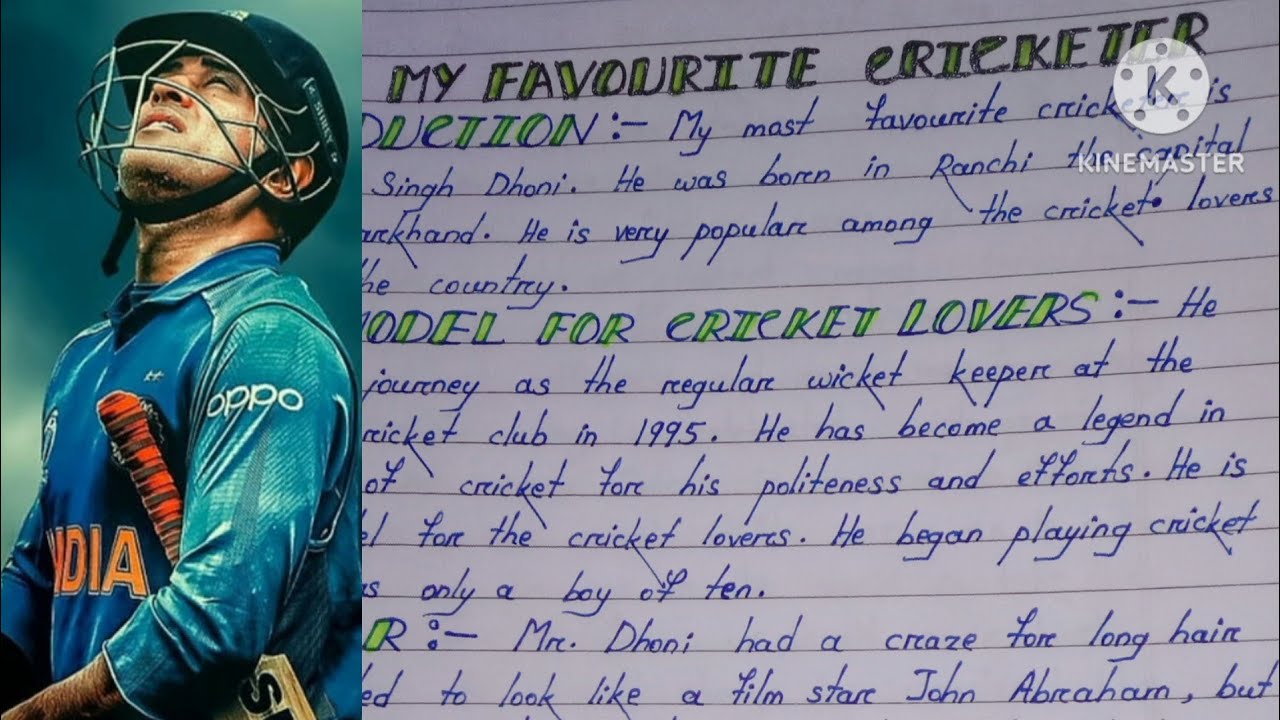 MY FAVOURITE CRICKETER
DUCTION :- My most favourite cricketer is
Singh Dhoni. He was born in Ranchi the capital
arkhand. He is very popular among the cricket lovers
the country.
MODEL FOR CRICKET LOVERS :- He
journey as the regular wicket keeper at the
cricket club in 1995. He has become a legend in
of cricket for his politeness and efforts. He is
el for the cricket lovers. He began playing cricket
as only a boy of ten.
R :- Mr. Dhoni had a craze for long hair
ed to look like a film star John Abraham, but
K
KINEMASTER
oppo
INDIA